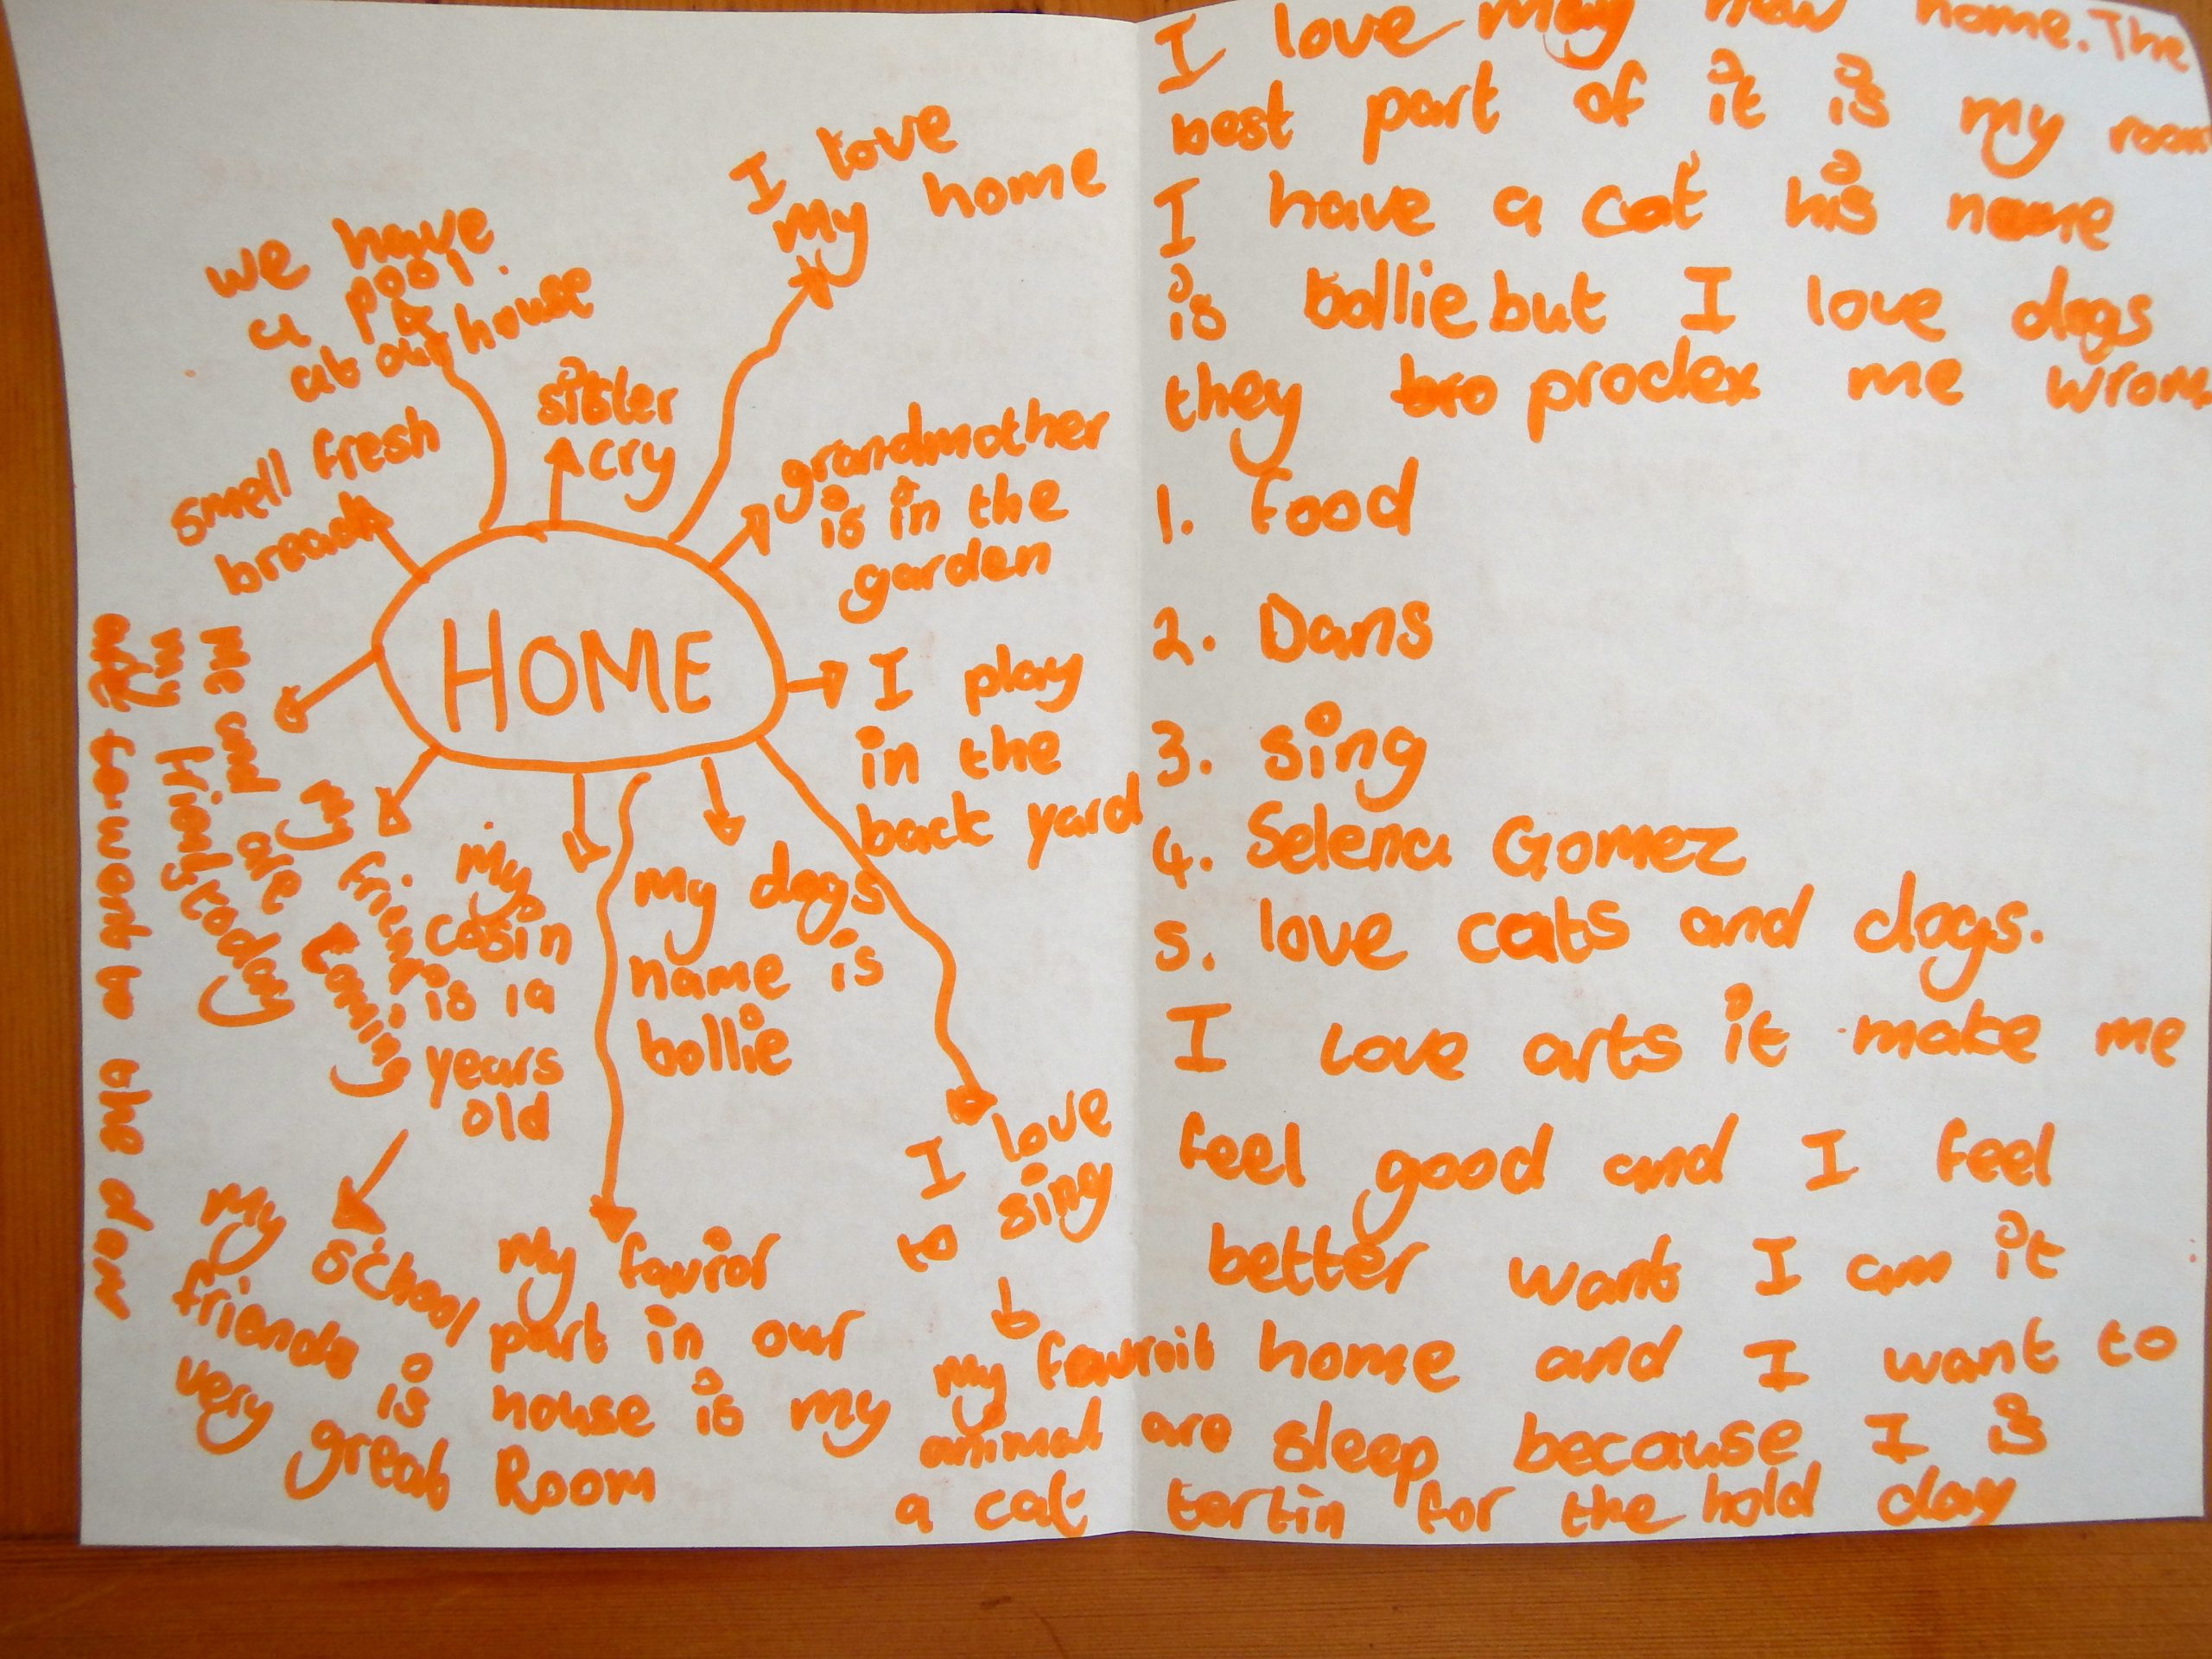 I love
my home
we have
a pool.
at our house
sister
cry
smell fresh
breach
grandmother
is in the
garden
HOME
I play
in the
back yard
me and are
my frionds today
are to. mom to the door
my
friends
coming
my
cosin
is 1a
years
old
my dogs
name is
bollie
I love
to sing
school
my
friends is
very great
my favior
part in our
house is my
Room
my favroit
animal are
a cat
I love may new home. The
best part of it is my room
I have a cat his name
is bollie but I love dogs
they bro prodex me wrom
1. food
2. Dans
3. sing
4. Selena Gomez
5. love cats and dogs.
I love arts it make me
feel good and I feel
better want I am it
home and I want to
sleep because I is
tertin for the hold day